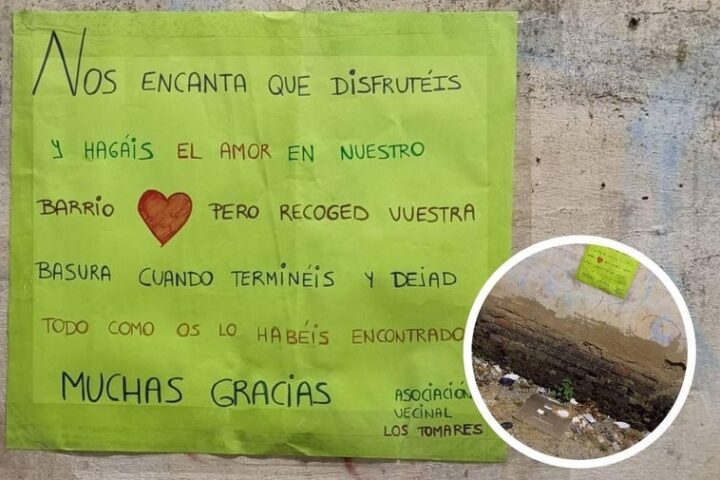 Nos ENCANTA QUE DISFRUTÉIS
Y HAGÁIS EL AMOR EN NUESTRO
BARRIO PERO RECOGED VUESTRA
BASURA CUANDO TERMINÉIS Y DEJAD
TODO COMO OS LO HABÉIS ENCONTRADO
MUCHAS GRACIAS
ASOCIACIÓN
VECINAL
LOS TOMARES